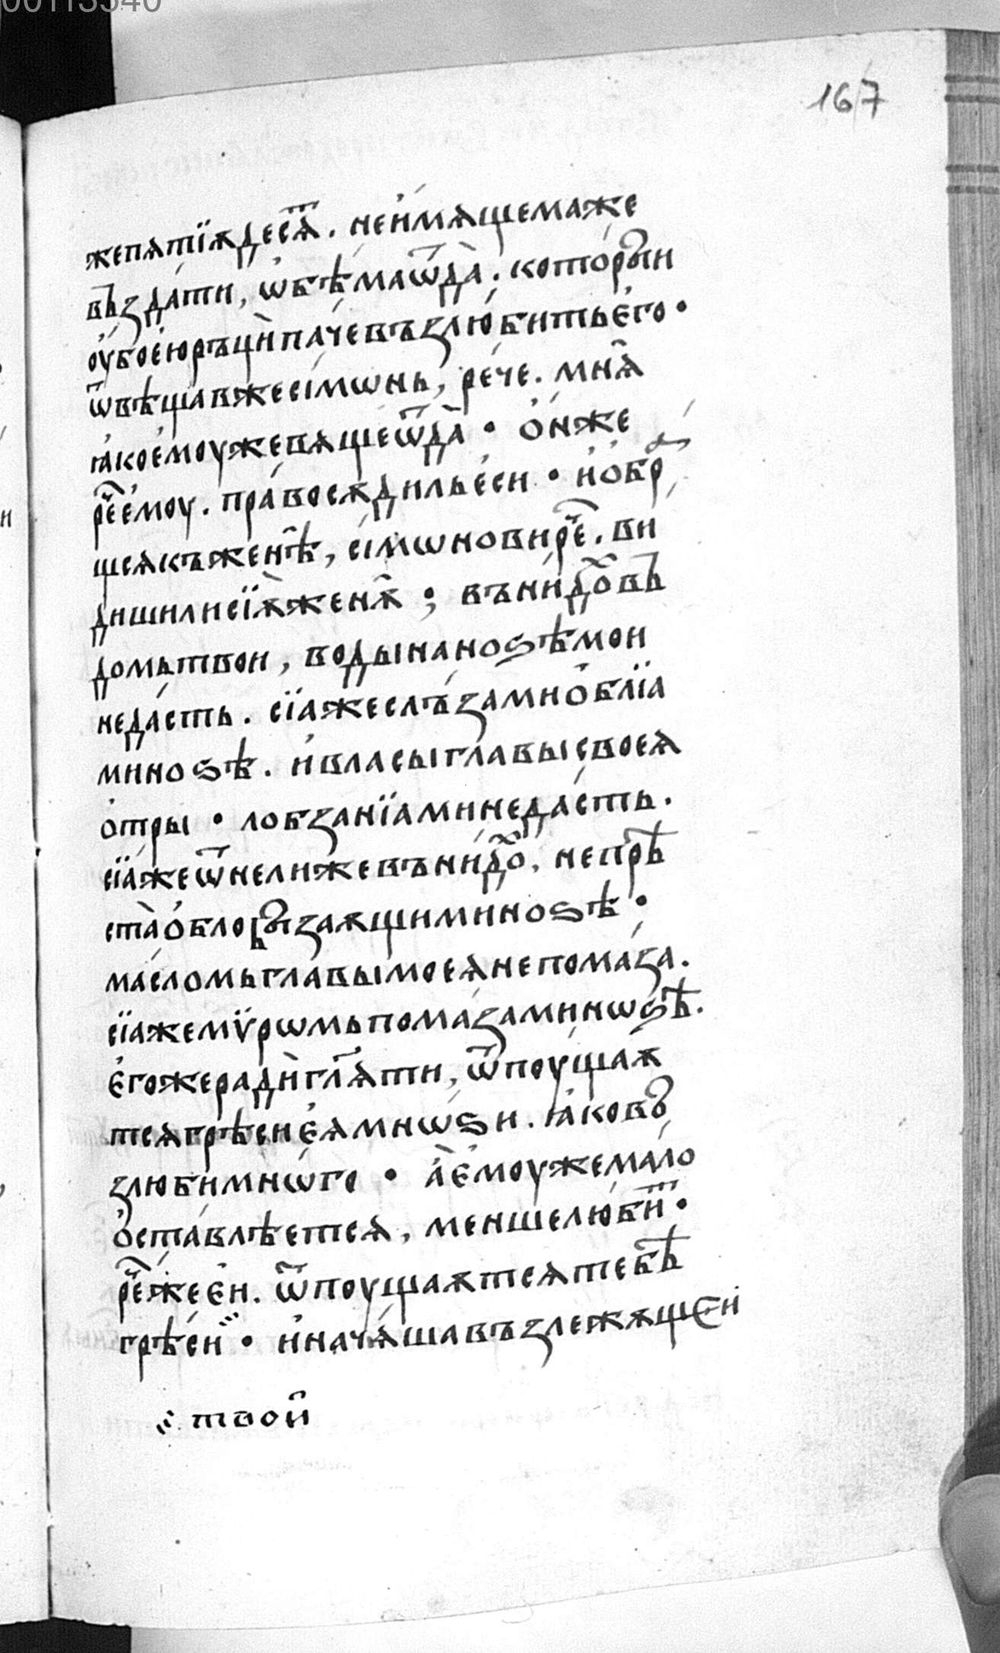 00113540
167
жепѧтїѫдесѧⷮ. неи҆мѧщемаже
въздати, ѡ҆бѣмаѿда̀. которыи
оу҆боею҆рьци̇̀пачевъзлюбитье҆го ·
ѿвѣщавжесімѡнь, рече. мнѧ҆
ꙗ҆кое҆моужевѧщеѿда̀ · О҆нже
рⷱ҇ее҆моу. правосѫдилье҆си · и҆о҆бр
щсѧкъженѣ̑, сімѡновирⷱ҇е. ви
дишилисїѫ̀женѫ̀ ; въни҆дⷯовъ
домьтвои, водынаноѕѣмои
недасть. сїажеслъзамио҆блїа
миноѕѣ. и҆власыглавысвоеѧ
о҆тры · лобзанїаминедасть.
сїажеѿнелижевънидⷯо, непрѣ
ста̀о҆блобызаѫщиминоѕѣ ·
масломьглавымоеѧнепомаза.
сїажемѵ̈рѡмьпомазаминѡѕѣ.
е҆гожерадѝгл҃ѧти, ѿпоущаѫ
тсѧгрѣсие҆ѧмнѡѕи. ꙗ҆ковъ
злюбимнѡго · а҆̀е҆моужемало
о҆ставлѣетсѧ, меншелюбиⷮ ·
рⷱ҇ежее҆и. ѿпоущаѫтсѧтебѣ
грѣси · и҆начѧшавъзлежѧщеи
твои